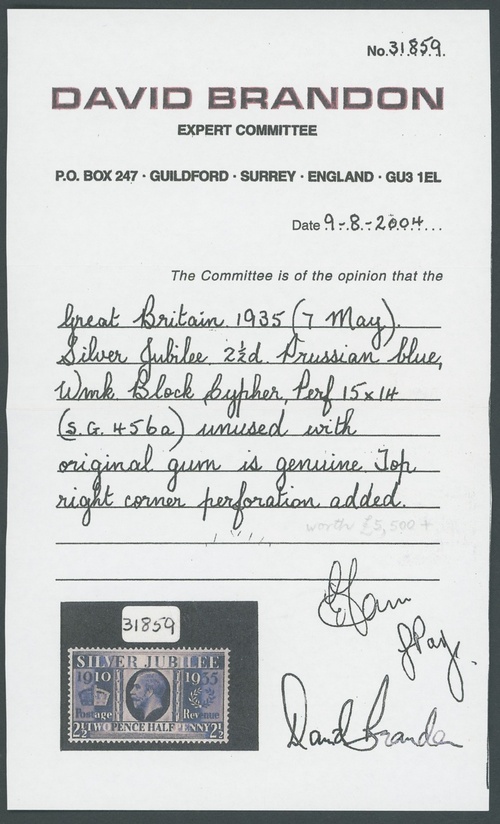 No. 31859.
DAVID BRANDON
EXPERT COMMITTEE
P.O. BOX 247 · GUILDFORD · SURREY · ENGLAND · GU3 1EL
Date 9-8-2004
The Committee is of the opinion that the
Great Britain 1935 (7 May).
Silver Jubilee 2½d. Prussian blue,
Wmk Block Cypher, Perf 15x14
(S.G. 456a) unused with
original gum is genuine Top
right corner perforation added.
worth £5,500+
31859
SILVER JUBILEE
1910 1935
Postage Revenue
2½ TWO PENCE HALFPENNY 2½
J Page.
David Brandon